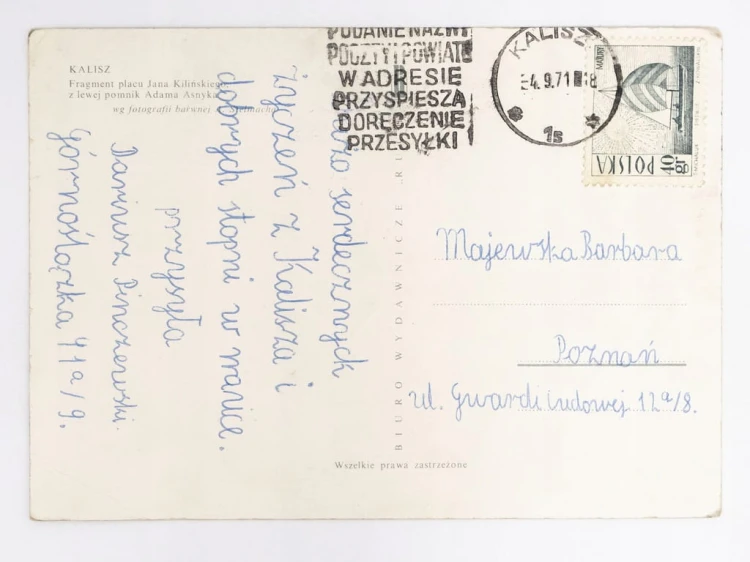 KALISZ
Fragment placu Jana Kilińskiego
z lewej pomnik Adama Asnyka
wg fotografii barwnej
serdecznych
życzeń z Kalisza i
dobrych stopni w nauce.
przysyła
Dariusz Pinczewski.
Górnośląska 41a/9.
BIURO WYDAWNICZE
Wszelkie prawa zastrzeżone
PODANIE NAZWY
POCZTY I POWIATU
W ADRESIE
PRZYSPIESZA
DORĘCZENIE
PRZESYŁKI
KALISZ
-4.9.71 18
1s
POLSKA
40 gr
Majewska Barbara
Poznań
ul. Gwardi Ludowej 12a/8.